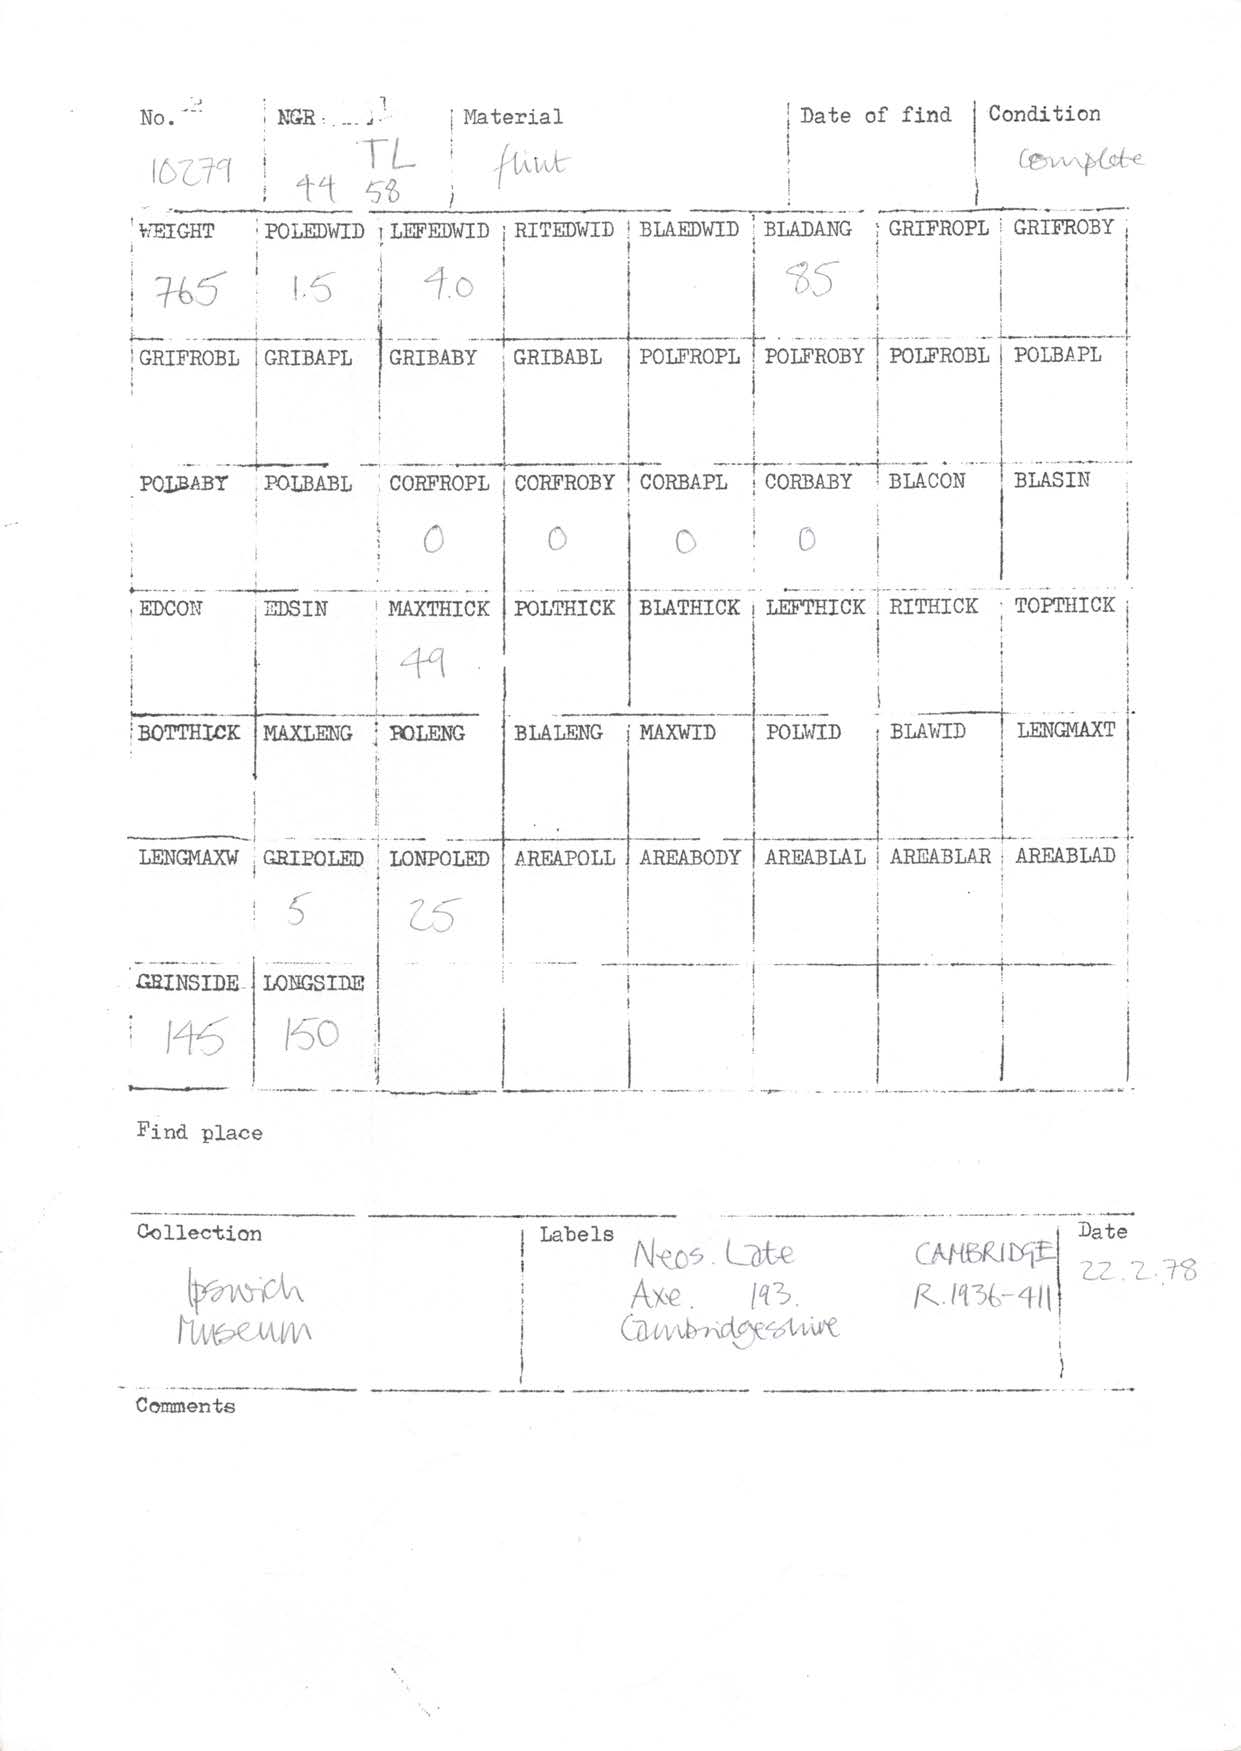 No. NGR Material Date of find Condition
10279 TL 44 58 flint complete
WEIGHT POLEDWID LEFEDWID RITEDWID BLAEDWID BLADANG GRIFROPL GRIFROBY
765 1.5 4.0 85
GRIFROBL GRIBAPL GRIBABY GRIBABL POLFROPL POLFROBY POLFROBL POLBAPL
POLBABY POLBABL CORFROPL CORFROBY CORBAPL CORBABY BLACON BLASIN
0 0 0 0
EDCON EDSIN MAXTHICK POLTHICK BLATHICK LEFTHICK RITHICK TOPTHICK
49
BOTTHICK MAXLENG POLENG BLALENG MAXWID POLWID BLAWID LENGMAXT
LENGMAXW GRIPOLED LONPOLED AREAPOLL AREABODY AREABLAL AREABLAR AREABLAD
5 25
GRINSIDE LONGSIDE
145 150
Find place
Collection Labels Date
Neos. Late CAMBRIDGE 22.2.78
Ipswich Axe. 193. R.1936-411
Museum Cambridgeshire
Comments